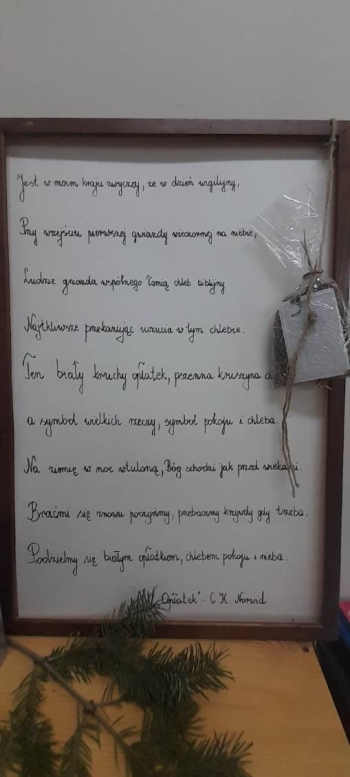 Jest w moim kraju zwyczaj, że w dzień wigilijny,
Przy wzejściu pierwszej gwiazdy wieczornej na niebie,
Ludzie gniazda wspólnego łamią chleb biblijny
Najtkliwsze przekazując uczucia w tym chlebie.
Ten biały kruchy opłatek, pszenna kruszyna
a symbol wielkich rzeczy, symbol pokoju i chleba.
Na ziemię w noc wtuloną, Bóg schodzi jak przed wiekami.
Braćmi się znowu poczyńmy, przebaczmy krzywdy gdy trzeba.
Podzielmy się białym opłatkiem, chlebem pokoju i nieba.
"Opłatek" - C. K. Norwid